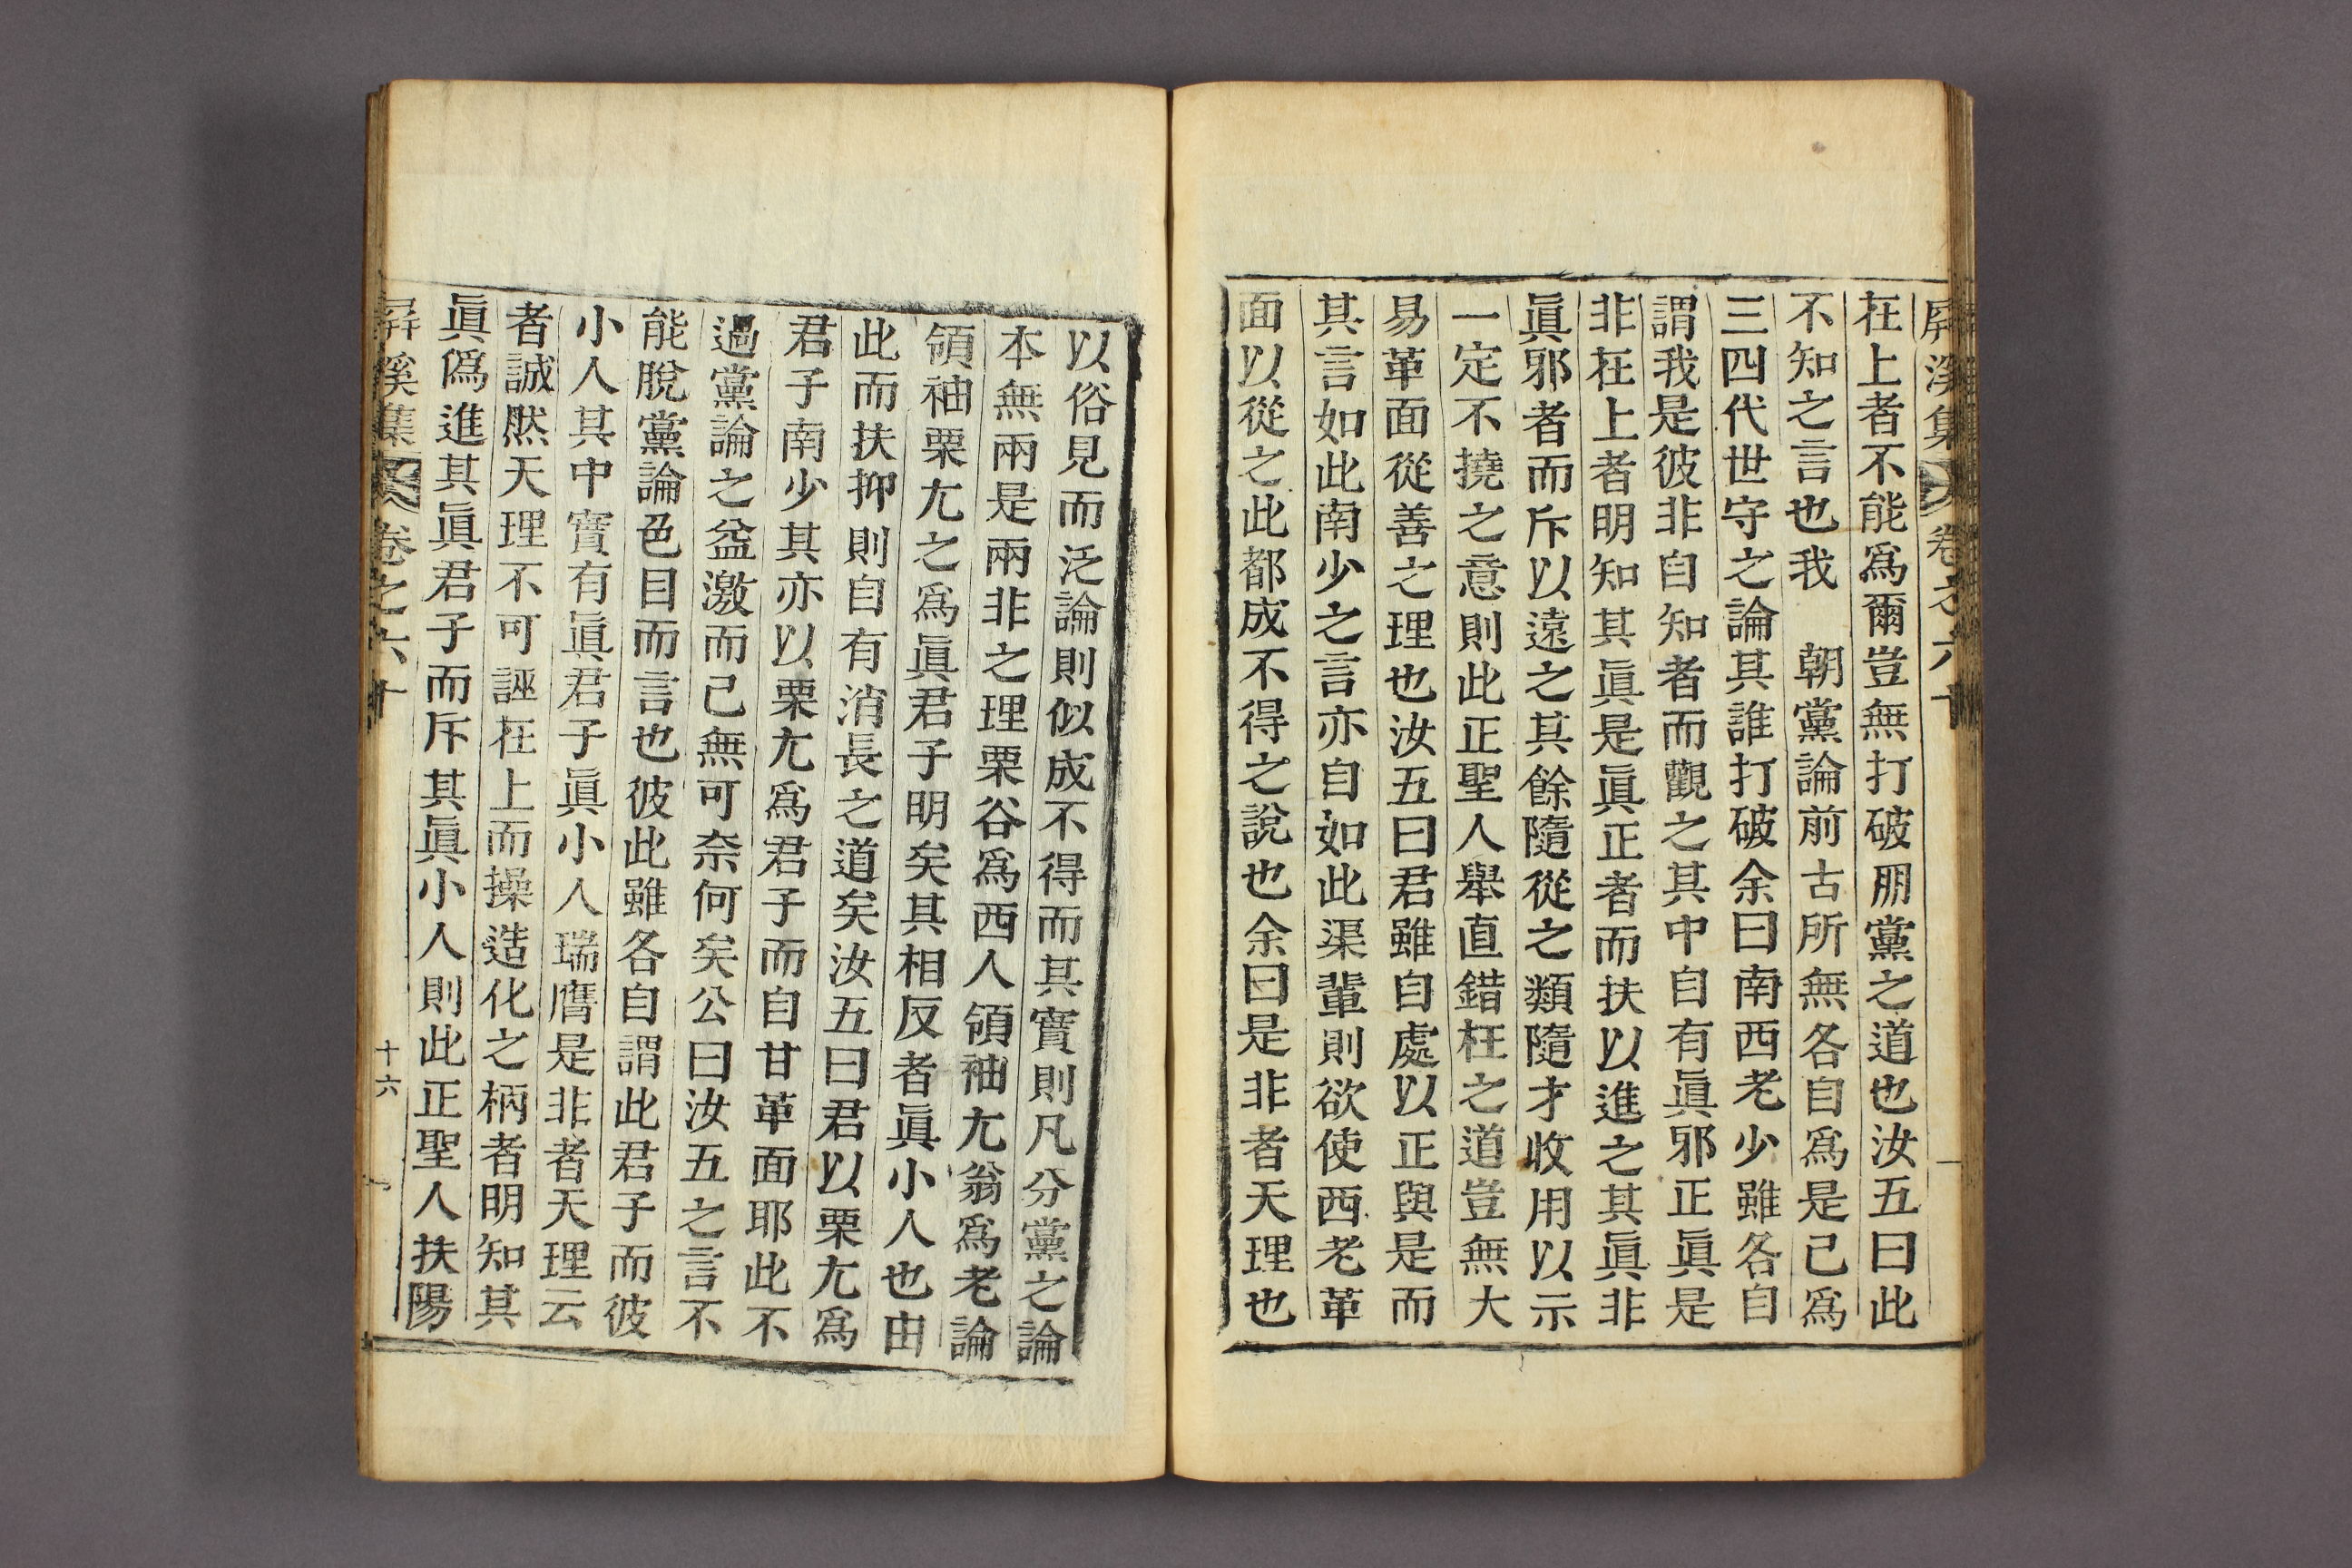 屛溪集 卷之六十
在上者不能爲爾豈無打破朋黨之道也汝五曰此
不知之言也我 朝黨論前古所無各自爲是己爲
三四代世守之論其誰打破余曰南西老少雖各自
謂我是彼非自知者而觀之其中自有眞邪正眞是
非在上者明知其眞是眞正者而扶以進之其眞非
眞邪者而斥以遠之其餘隨從之類隨才收用以示
一定不撓之意則此正聖人舉直錯枉之道豈無大
易革面從善之理也汝五曰君雖自處以正與是而
其言如此南少之言亦自如此渠輩則欲使西老革
面以從之此都成不得之說也余曰是非者天理也
以俗見而泛論則似成不得而其實則凡分黨之論
本無兩是兩非之理栗谷爲西人領袖尤翁爲老論
領袖栗尤之爲眞君子明矣其相反者眞小人也由
此而扶抑則自有消長之道矣汝五曰君以栗尤爲
君子南少其亦以栗尤爲君子而自甘革面耶此不
過黨論之益激而已無可奈何矣公曰汝五之言不
能脫黨論色目而言也彼此雖各自謂此君子而彼
小人其中實有眞君子眞小人瑞膺是非者天理云
者誠然天理不可誣在上而操造化之柄者明知其
眞僞進其眞君子而斥其眞小人則此正聖人扶陽
屛溪集 卷之六十 十六